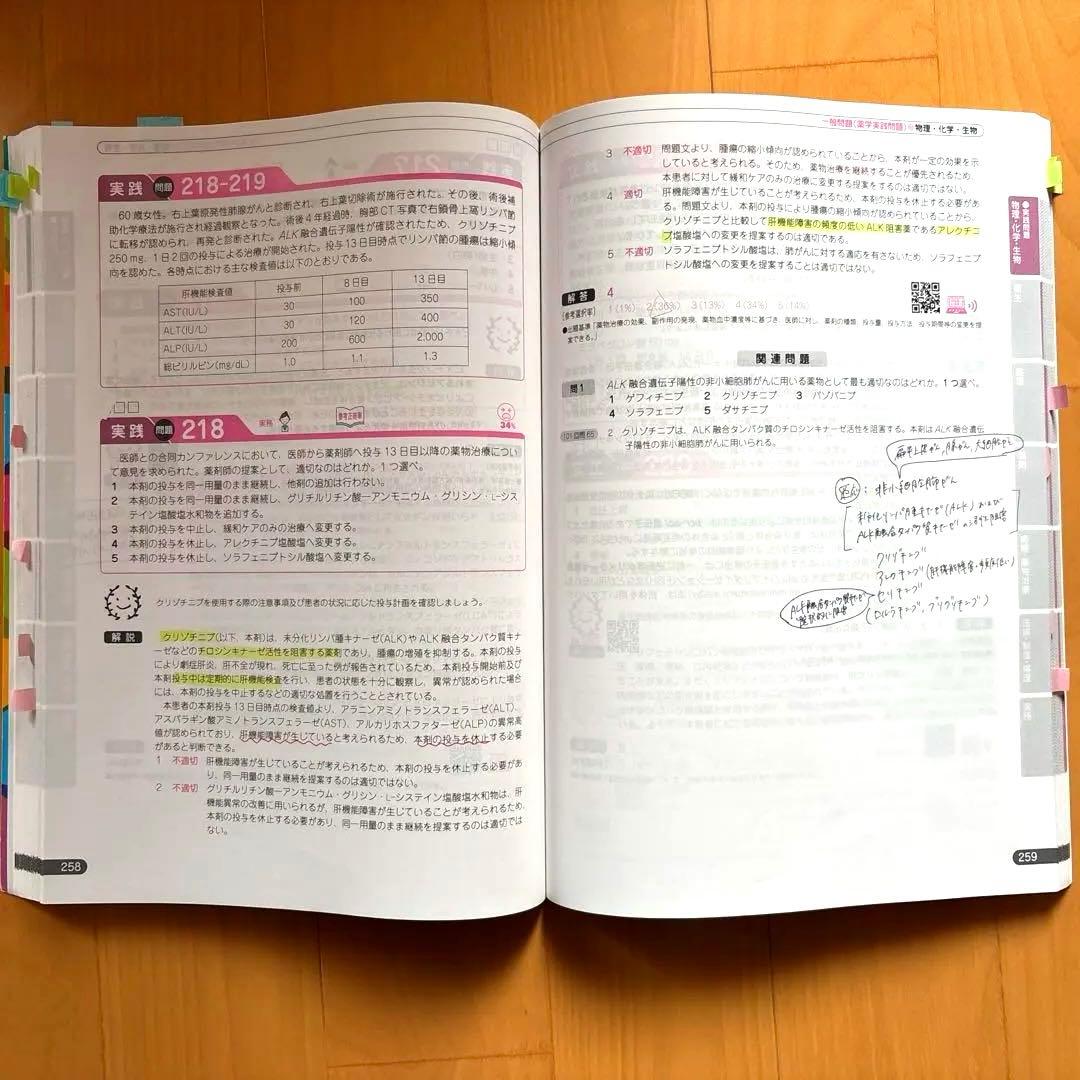 実践 問題 218-219
60歳女性。右上葉原発性肺腺がんと診断され、右上葉切除術が施行された。その後、術後補
助化学療法が施行され経過観察となった。術後4年経過時、胸部CT写真で右鎖骨上窩リンパ節
に転移が認められ、再発と診断された。ALK融合遺伝子陽性が確認されたため、クリゾチニブ
250 mg、1日2回の投与による治療が開始された。投与13日目時点でリンパ節の腫瘍は縮小傾
向を認めた。各時点における主な検査値は以下のとおりである。
肝機能検査値 投与前 8日目 13日目
AST(IU/L) 30 100 350
ALT(IU/L) 30 120 400
ALP(IU/L) 200 600 2,000
総ビリルビン(mg/dL) 1.0 1.1 1.3
実践 問題 218 実務 参考正答率 34%
医師との合同カンファレンスにおいて、医師から薬剤師へ投与13日目以降の薬物治療につい
て意見を求められた。薬剤師の提案として、適切なのはどれか。1つ選べ。
1 本剤の投与を同一用量のまま継続し、他剤の追加は行わない。
2 本剤の投与を同一用量のまま継続し、グリチルリチン酸一アンモニウム・グリシン・L-シス
テイン塩酸塩水和物を追加する。
3 本剤の投与を中止し、緩和ケアのみの治療へ変更する。
4 本剤の投与を休止し、アレクチニブ塩酸塩へ変更する。
5 本剤の投与を休止し、ソラフェニブトシル酸塩へ変更する。
クリゾチニブを使用する際の注意事項及び患者の状況に応じた投与計画を確認しましょう。
解説 クリゾチニブ(以下、本剤)は、未分化リンパ腫キナーゼ(ALK)やALK融合タンパク質キナ
ーゼなどのチロシンキナーゼ活性を阻害する薬剤であり、腫瘍の増殖を抑制する。本剤の投与
により劇症肝炎、肝不全が現れ、死亡に至った例が報告されているため、本剤投与開始前及び
本剤投与中は定期的に肝機能検査を行い、患者の状態を十分に観察し、異常が認められた場合
には、本剤の投与を中止するなどの適切な処置を行うこととされている。
本患者の本剤投与13日目時点の検査値より、アラニンアミノトランスフェラーゼ(ALT)、
アスパラギン酸アミノトランスフェラーゼ(AST)、アルカリホスファターゼ(ALP)の異常高
値が認められており、肝機能障害が生じていると考えられるため、本剤の投与を休止する必要
があると判断できる。
1 不適切 肝機能障害が生じていることが考えられるため、本剤の投与を休止する必要があ
り、同一用量のまま継続を提案するのは適切ではない。
2 不適切 グリチルリチン酸一アンモニウム・グリシン・L-システイン塩酸塩水和物は、肝
機能異常の改善に用いられるが、肝機能障害が生じていることが考えられるため、
本剤の投与を休止する必要があり、同一用量のまま継続を提案するのは適切では
ない。
258
一般問題(薬学実践問題) 物理・化学・生物
3 不適切 問題文より、腫瘍の縮小傾向が認められていることから、本剤が一定の効果を示
していると考えられる。そのため、薬物治療を継続することが優先されるため、
本患者に対して緩和ケアのみの治療に変更する提案をするのは適切ではない。
4 適切 肝機能障害が生じていることが考えられるため、本剤の投与を休止する必要があ
る。問題文より、本剤の投与により腫瘍の縮小傾向が認められていることから、
クリゾチニブと比較して肝機能障害の頻度の低いALK阻害薬であるアレクチニ
ブ塩酸塩への変更を提案するのは適切である。
5 不適切 ソラフェニブトシル酸塩は、肺がんに対する適応を有さないため、ソラフェニブ
トシル酸塩への変更を提案することは適切ではない。
解答 4
【参考選択率】 1(1%) 2(36%) 3(13%) 4(34%) 5(14%)
●出題基準「薬物治療の効果、副作用の発現、薬物血中濃度等に基づき、医師に対し、薬剤の種類、投与量、投与方法、投与期間等の変更を提
案できる。」
関連問題
問1 ALK融合遺伝子陽性の非小細胞肺がんに用いる薬物として最も適切なのはどれか。1つ選べ。
1 ゲフィチニブ 2 クリゾチニブ 3 パゾパニブ
4 ソラフェニブ 5 ダサチニブ
101回問65 2 クリゾチニブは、ALK融合タンパク質のチロシンキナーゼ活性を阻害する。本剤はALK融合遺伝
子陽性の非小細胞肺がんに用いられる。
扁平上皮がん、腺がん、大細胞がん
:非小細胞肺がん
未分化リンパ腫キナーゼ(ALK)および
ALK融合タンパク質キナーゼの
クリゾチニブ
アレクチニブ(肝機能障害・頻度低い)
セリチニブ
(ロルラチニブ、ブリグチニブ)
ALK融合タンパク質キナーゼ
選択的に阻害
●実践問題
物理・化学・生物
衛生
薬理
法規・制度・倫理
実務
259